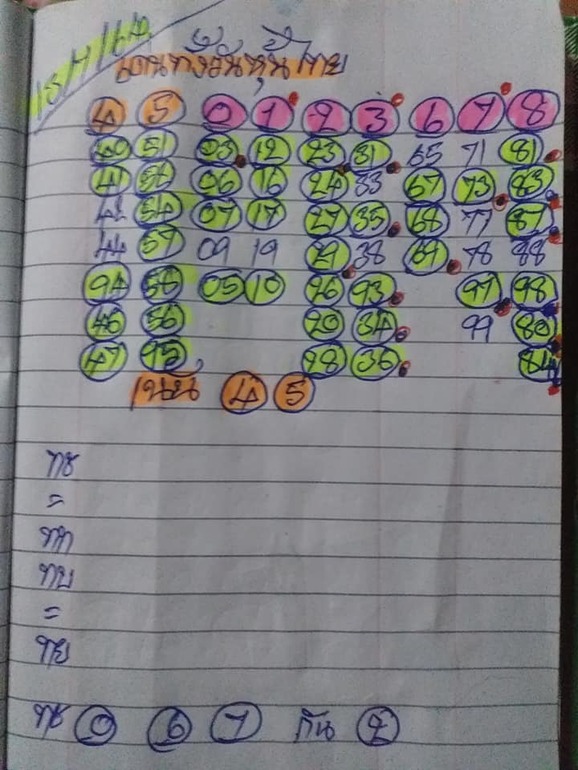 เดนทั้งวันหุ้นไทย
4 5 0 1 2 3 6 7 8
40 51 03 12 23 31 65 71 81
41 06 16 24 33 67 73 83
42 54 07 17 27 35 68 77 87
44 57 09 19 29 38 69 78 88
94 58 05 10 26 93 97 98
46 56 20 34 99 80
47 95 28 36 84
เน้น 4 5
ทช
=
ทท
ทบ
=
ทย
ทช 0 6 7 กัน 2